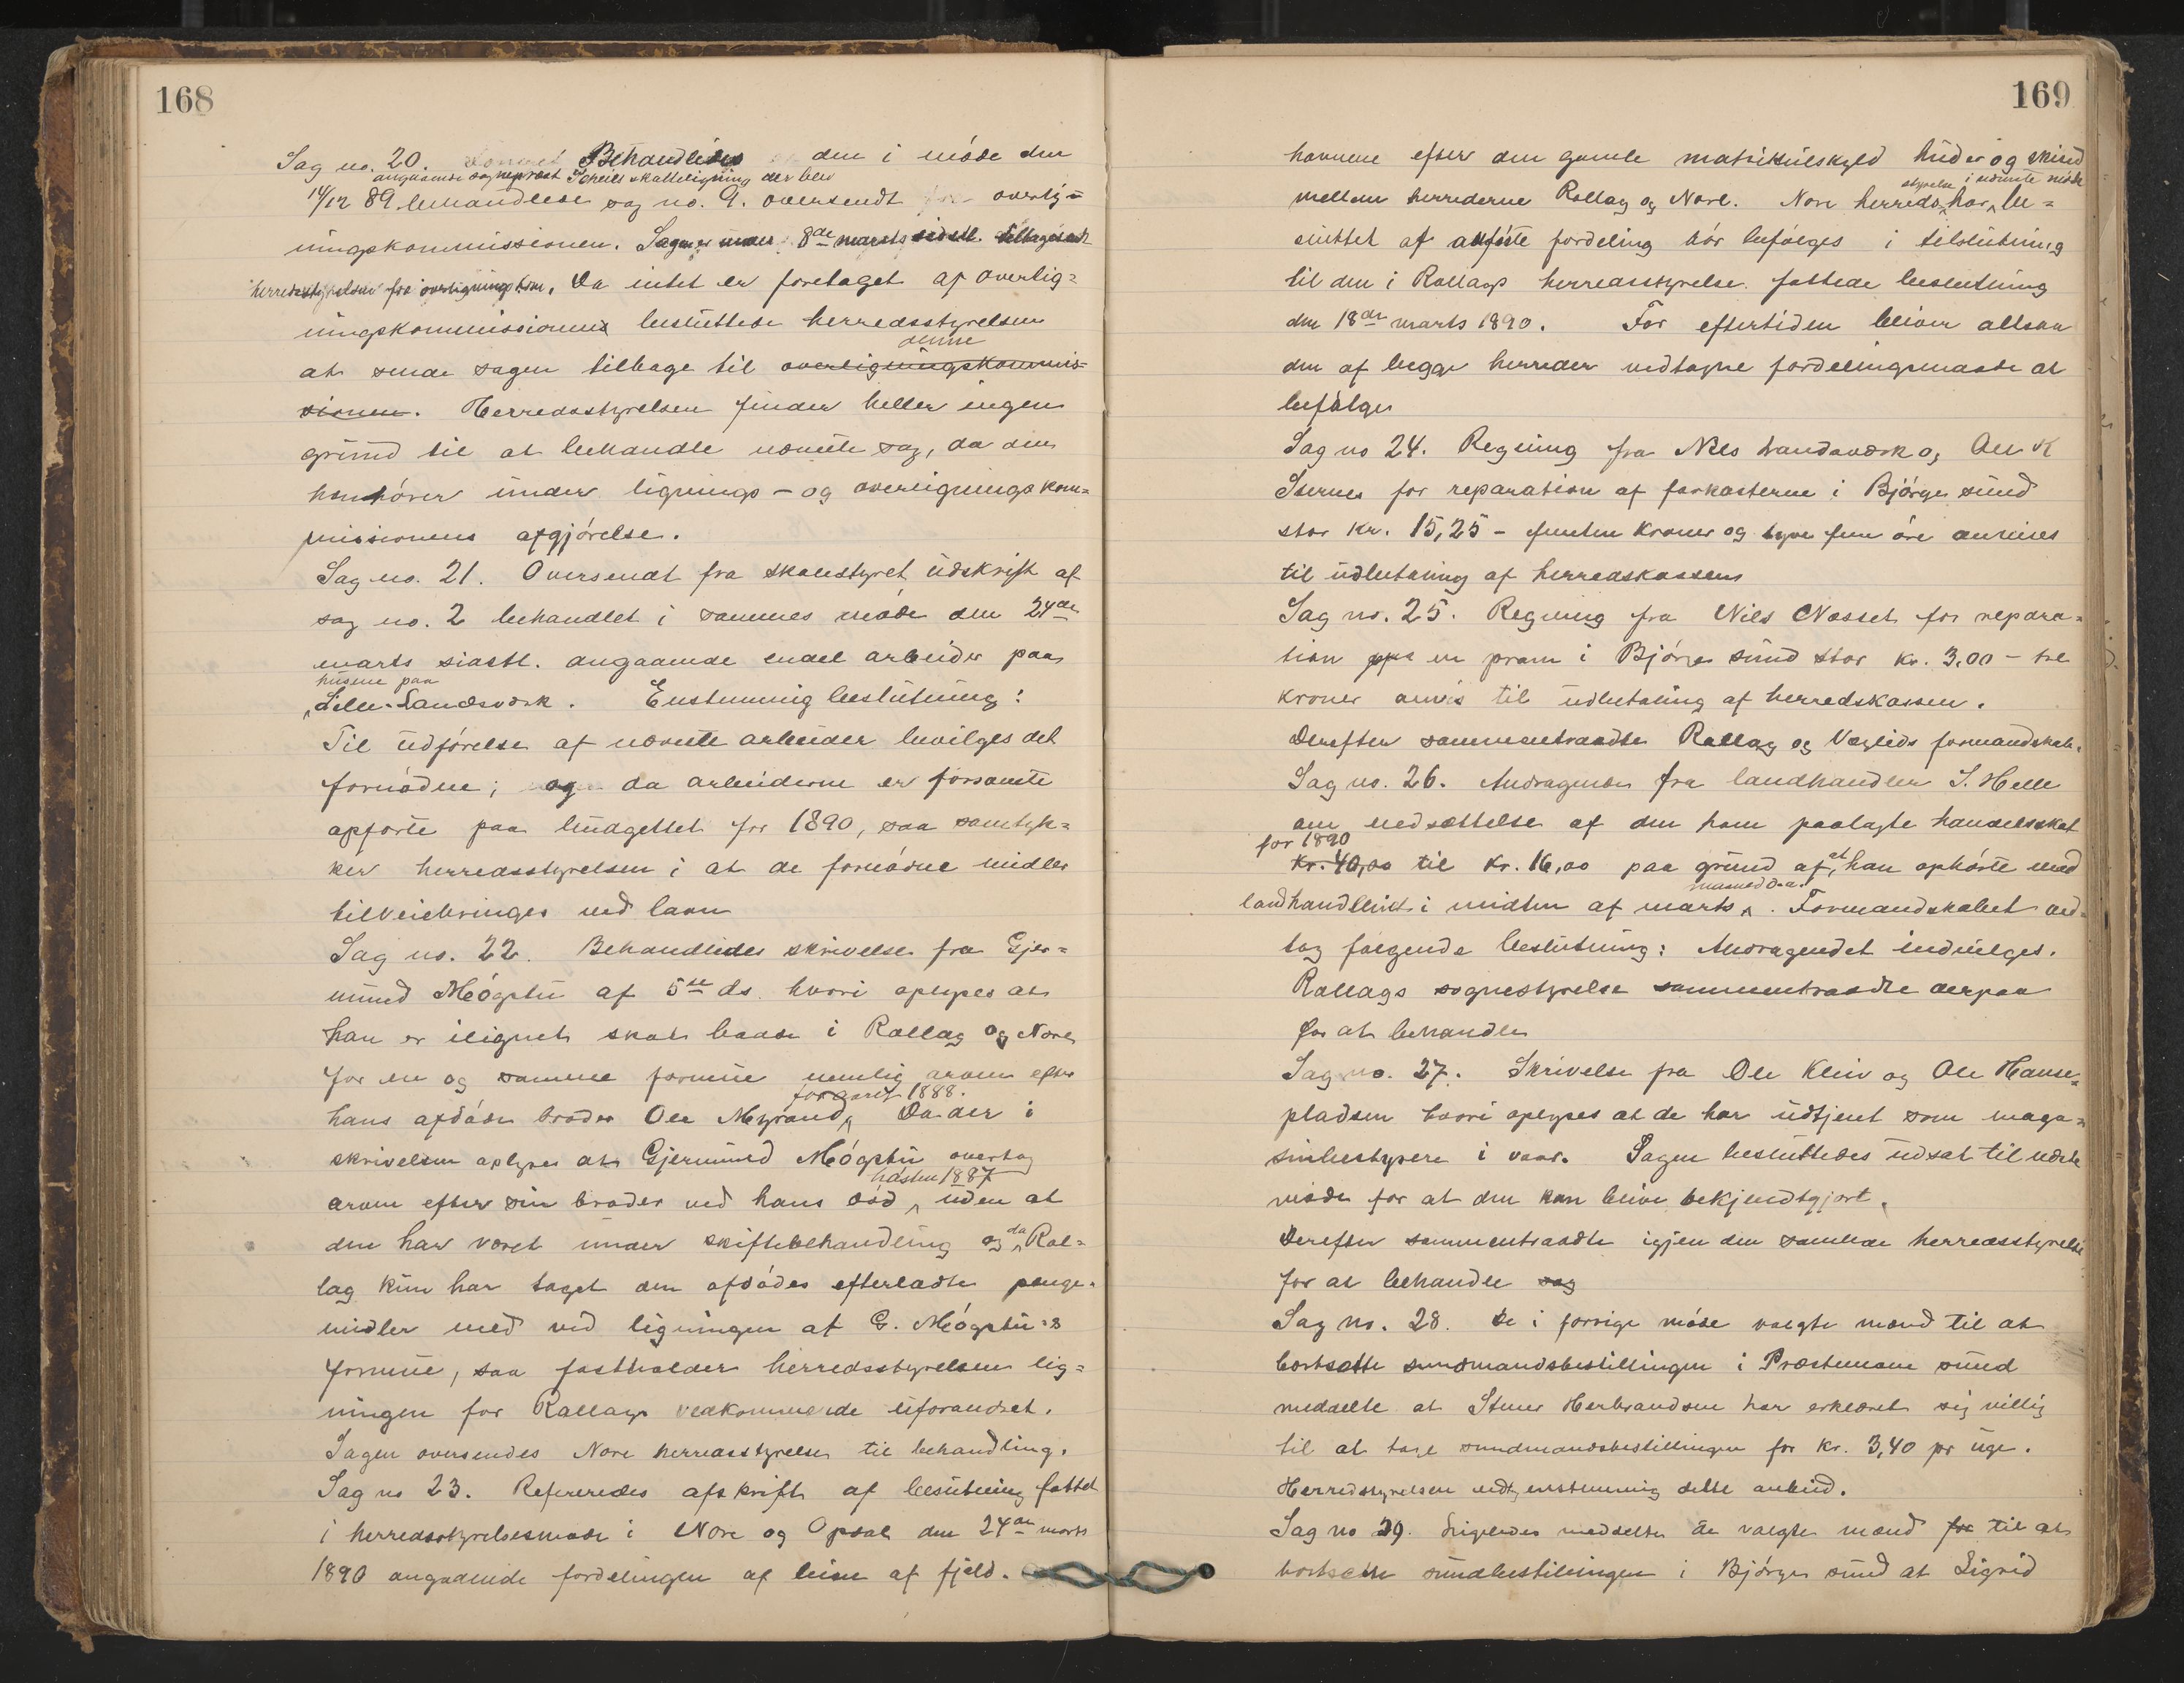 168
Sag no. 20. Behandledes den i möde den
angaaende sogneprest Scheils skatteligning der blev
14/12 89 behandlede sag no. 9. oversendt overlig=
ningskommissionen. Sagen er under 8de marts sidstl. tilbagesendt
herredsstyrelsen fra overligningskom. Da intet er foretaget af overlig=
ningskommissionen besluttede herredsstyrelsen
denne
at sende sagen tilbage til overligningskommis=
sionen. Herredsstyrelsen finder heller ingen
grund til at behandle nævnte sag, da den
henhörer under lignings- og overligningskom=
missionens afgjörelse.
Sag no. 21. Oversendt fra skolestyret udskrift af
sag no. 2 behandlet i sammes möde den 24de
marts sidstl. angaaende endel arbeider paa
husene paa
Lille-Landsværk. Enstemmig beslutning:
Til udförelse af nævnte arbeider bevilges det
fornödne; og da arbeiderne er forsømte
opförte paa budgettet for 1890, saa samtyk=
ker herredsstyrelsen i at de fornödne midler
tilveiebringes ved laan
Sag no. 22. Behandledes skrivelse fra Gjer=
mund Mögstu af 5te ds. hvori oplyses at
han er ilignet skat baade i Rollag og Nore
for en og samme formue nemlig arven efter
for aaret 1888.
hans afdöde broder Ole Myrand, Da der i
skrivelsen oplyses at Gjermund Mögstu overtog
hösten 1887
arven efter sin broder ved hans död, uden at
den har været under skiftebehandling og da Rol=
lag kun har taget den afdödes efterladte penge=
midler med ved ligningen af G. Mögstu's
formue, saa fastholder herredsstyrelsen lig=
ningen for Rollags vedkommende uforandret.
Sagen oversendes Nore herredsstyrelse til behandling.
Sag no 23. Refereredes afskrift af beslutning fattet
i herredsstyrelsesmöde i Nore og Opdal den 24de marts
1890 angaaende fordelingen af leien af fjeld-
169
havnene efter den gamle matrikulskyld huder og skind
styrelse i nævnte möde
mellem herrederne Rollag og Nore. Nore herreds har be=
sluttet at anförte fordeling bör befölges i tilslutning
til den i Rollags herredsstyrelse fattede beslutning
den 18de marts 1890. For eftertiden bliver altsaa
den af begge herreder vedtagne fordelingsmaade at
befölge
Sag no 24. Regning fra Nels Landsværk og Ole K
Sternes for reparation af farkosterne i Björge sund
stor kr. 15,25 - femten kroner og tyve fem öre anvises
til udbetaling af herredskassen
Sag no. 25. Regning fra Niels Næsset for repara=
tion paa en pram i Björge sund stor kr. 3,00 - tre
kroner anvis til udbetaling af herredskassen.
Derefter sammentraadte Rollag og Veglids formandskab.
Sag no. 26. Andragende fra landhandler S. Helle
om nedsættelse af den ham paalagte handelsskat
for 1890
kr. 40,00 til kr. 16,00 paa grund af, at han ophörte med
maaned d.a.
landhandleriet i midten af marts. Formandskabet ved=
tog fölgende beslutning: Andragendet indvilges.
Rollags sognestyrelse sammentraadte derpaa
for at behandle
Sag no. 27. Skrivelse fra Ole Kleiv og Ole Hanse=
pladsen hvori oplyses at de har udtjent som maga=
sinbestyrere i vaar. Sagen besluttedes udsat til næste
möde for at den kan blive bekjendtgjort.
Derefter sammentraadte igjen den samlede herredsstyrelse
for at behandle sag
Sag no. 28. De i forrige möde valgte mænd til at
bortsætte sundmandsbestillingen i Præstemoen sund
meddelte at Stener Herbrandsen har erklæret sig villig
til at tage sundmandsbestillingen for kr. 3,40 pr uge.
Herredsstyrelsen vedtog enstemmig dette anbud.
Sag no 29. Ligeledes meddelte de valgte mænd for til at
bortsætte sundbestillingen i Björge sund at Sigrid